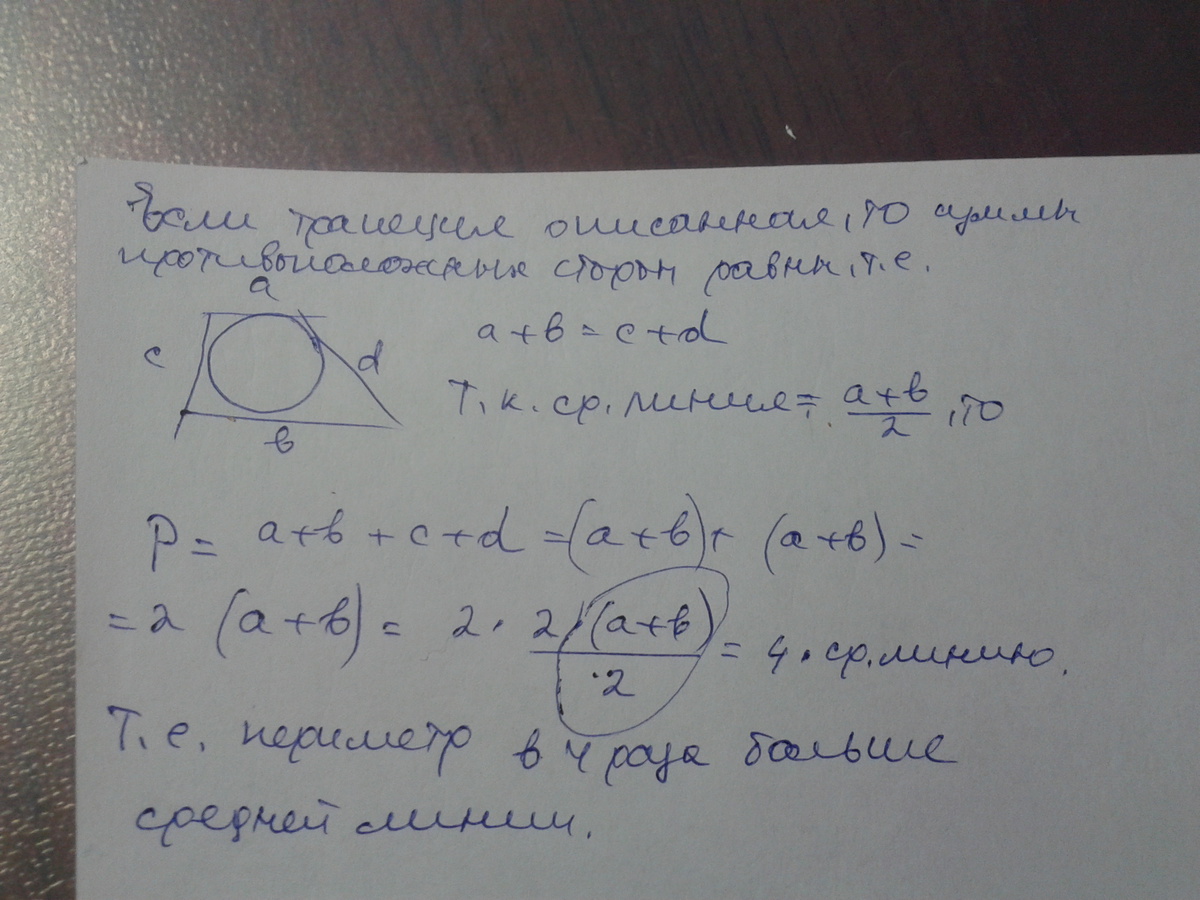 Если трапеция описанная, то суммы
противоположных сторон равны, т.е.
a
c
d
в
a+в = c+d
Т.к. ср. линия = a+в/2, то
P = a+в+c+d = (a+в)+ (a+в) =
= 2 (a+в) = 2 · 2·(a+в)/2 = 4 · ср. линию.
Т.е. периметр в 4 раза больше
средней линии.